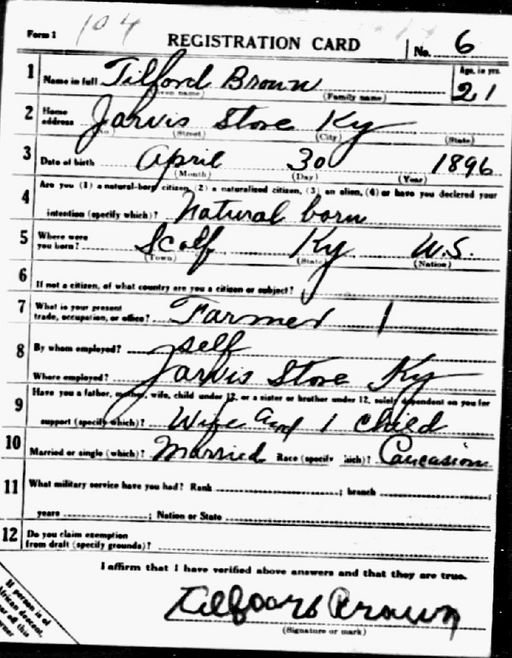 Form 1 104 REGISTRATION CARD No. 6
1 Name in full Tilford Brown Age, in yrs. 21
(Given name) (Family name)
2 Home address Jarvis Store Ky
(No.) (Street) (City) (State)
3 Date of birth April 30 1896
(Month) (Day) (Year)
4 Are you (1) a natural-born citizen, (2) a naturalized citizen, (3) an alien, (4) or have you declared your
intention (specify which)? Natural born
5 Where were you born? Scalf Ky U.S.
(Town) (State) (Nation)
6 If not a citizen, of what country are you a citizen or subject?
7 What is your present trade, occupation, or office? Farmer 1
8 By whom employed? self
Where employed? Jarvis Store Ky
9 Have you a father, mother, wife, child under 12, or a sister or brother under 12, solely dependent on you for
support (specify which)? Wife and 1 child
10 Married or single (which)? Married Race (specify which)? Caucasion
11 What military service have you had? Rank ; branch ;
years ; Nation or State
12 Do you claim exemption from draft (specify grounds)?
I affirm that I have verified above answers and that they are true.
Tilfoard Brown
(Signature or mark)
If person is of
African descent,